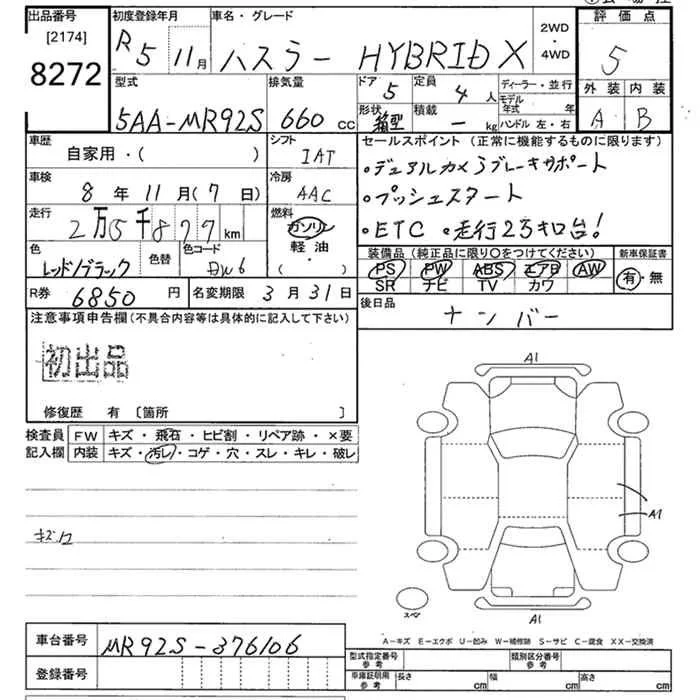 出品番号 初度登録年月 車名・グレード 2WD・4WD 評価点
[2174] 8272 R5 11月 ハスラー HYBRID X 5
型式 排気量 ドア 定員 ディーラー・並行 外装 内装
5AA-MR92S 660 cc 5 4人 モデル年式 年 A B
形状 箱型 積載 - kg ハンドル 左・右
車歴 シフト セールスポイント (正常に機能するものに限ります)
自家用・( ) IAT ・デュアルカメラブレーキサポート
車検 冷房
8年11月(7日) AAC ・プッシュスタート
走行 燃料
2万5千877km ガソリン ・ETC ・走行25キロ台!
色 色替 色コード 軽油・( ) 装備品 (純正品に限り○をつけてください) 新車保証書
レッド/ブラック PS PW ABS エアB AW 有・無
SR ナビ TV カワ
R券 6850円 名変期限 3月31日 後日品
注意事項申告欄 (不具合内容等は具体的に記入して下さい) ナンバー
初出品
修復歴 有 〔箇所 〕
検査員記入欄 FW キズ・飛石・ヒビ割・リペア跡・×要
内装 キズ・汚レ・コゲ・穴・スレ・キレ・破レ
A1
A1
A1
スペ
A-キズ E-エクボ U-凹み W-補修跡 S-サビ C-腐食 XX-交換済
車台番号 MR92S-376106
型式指定番号 参考 類別区分番号 参考
登録番号 車庫証明用 参考 長さ cm 幅 cm 高さ cm